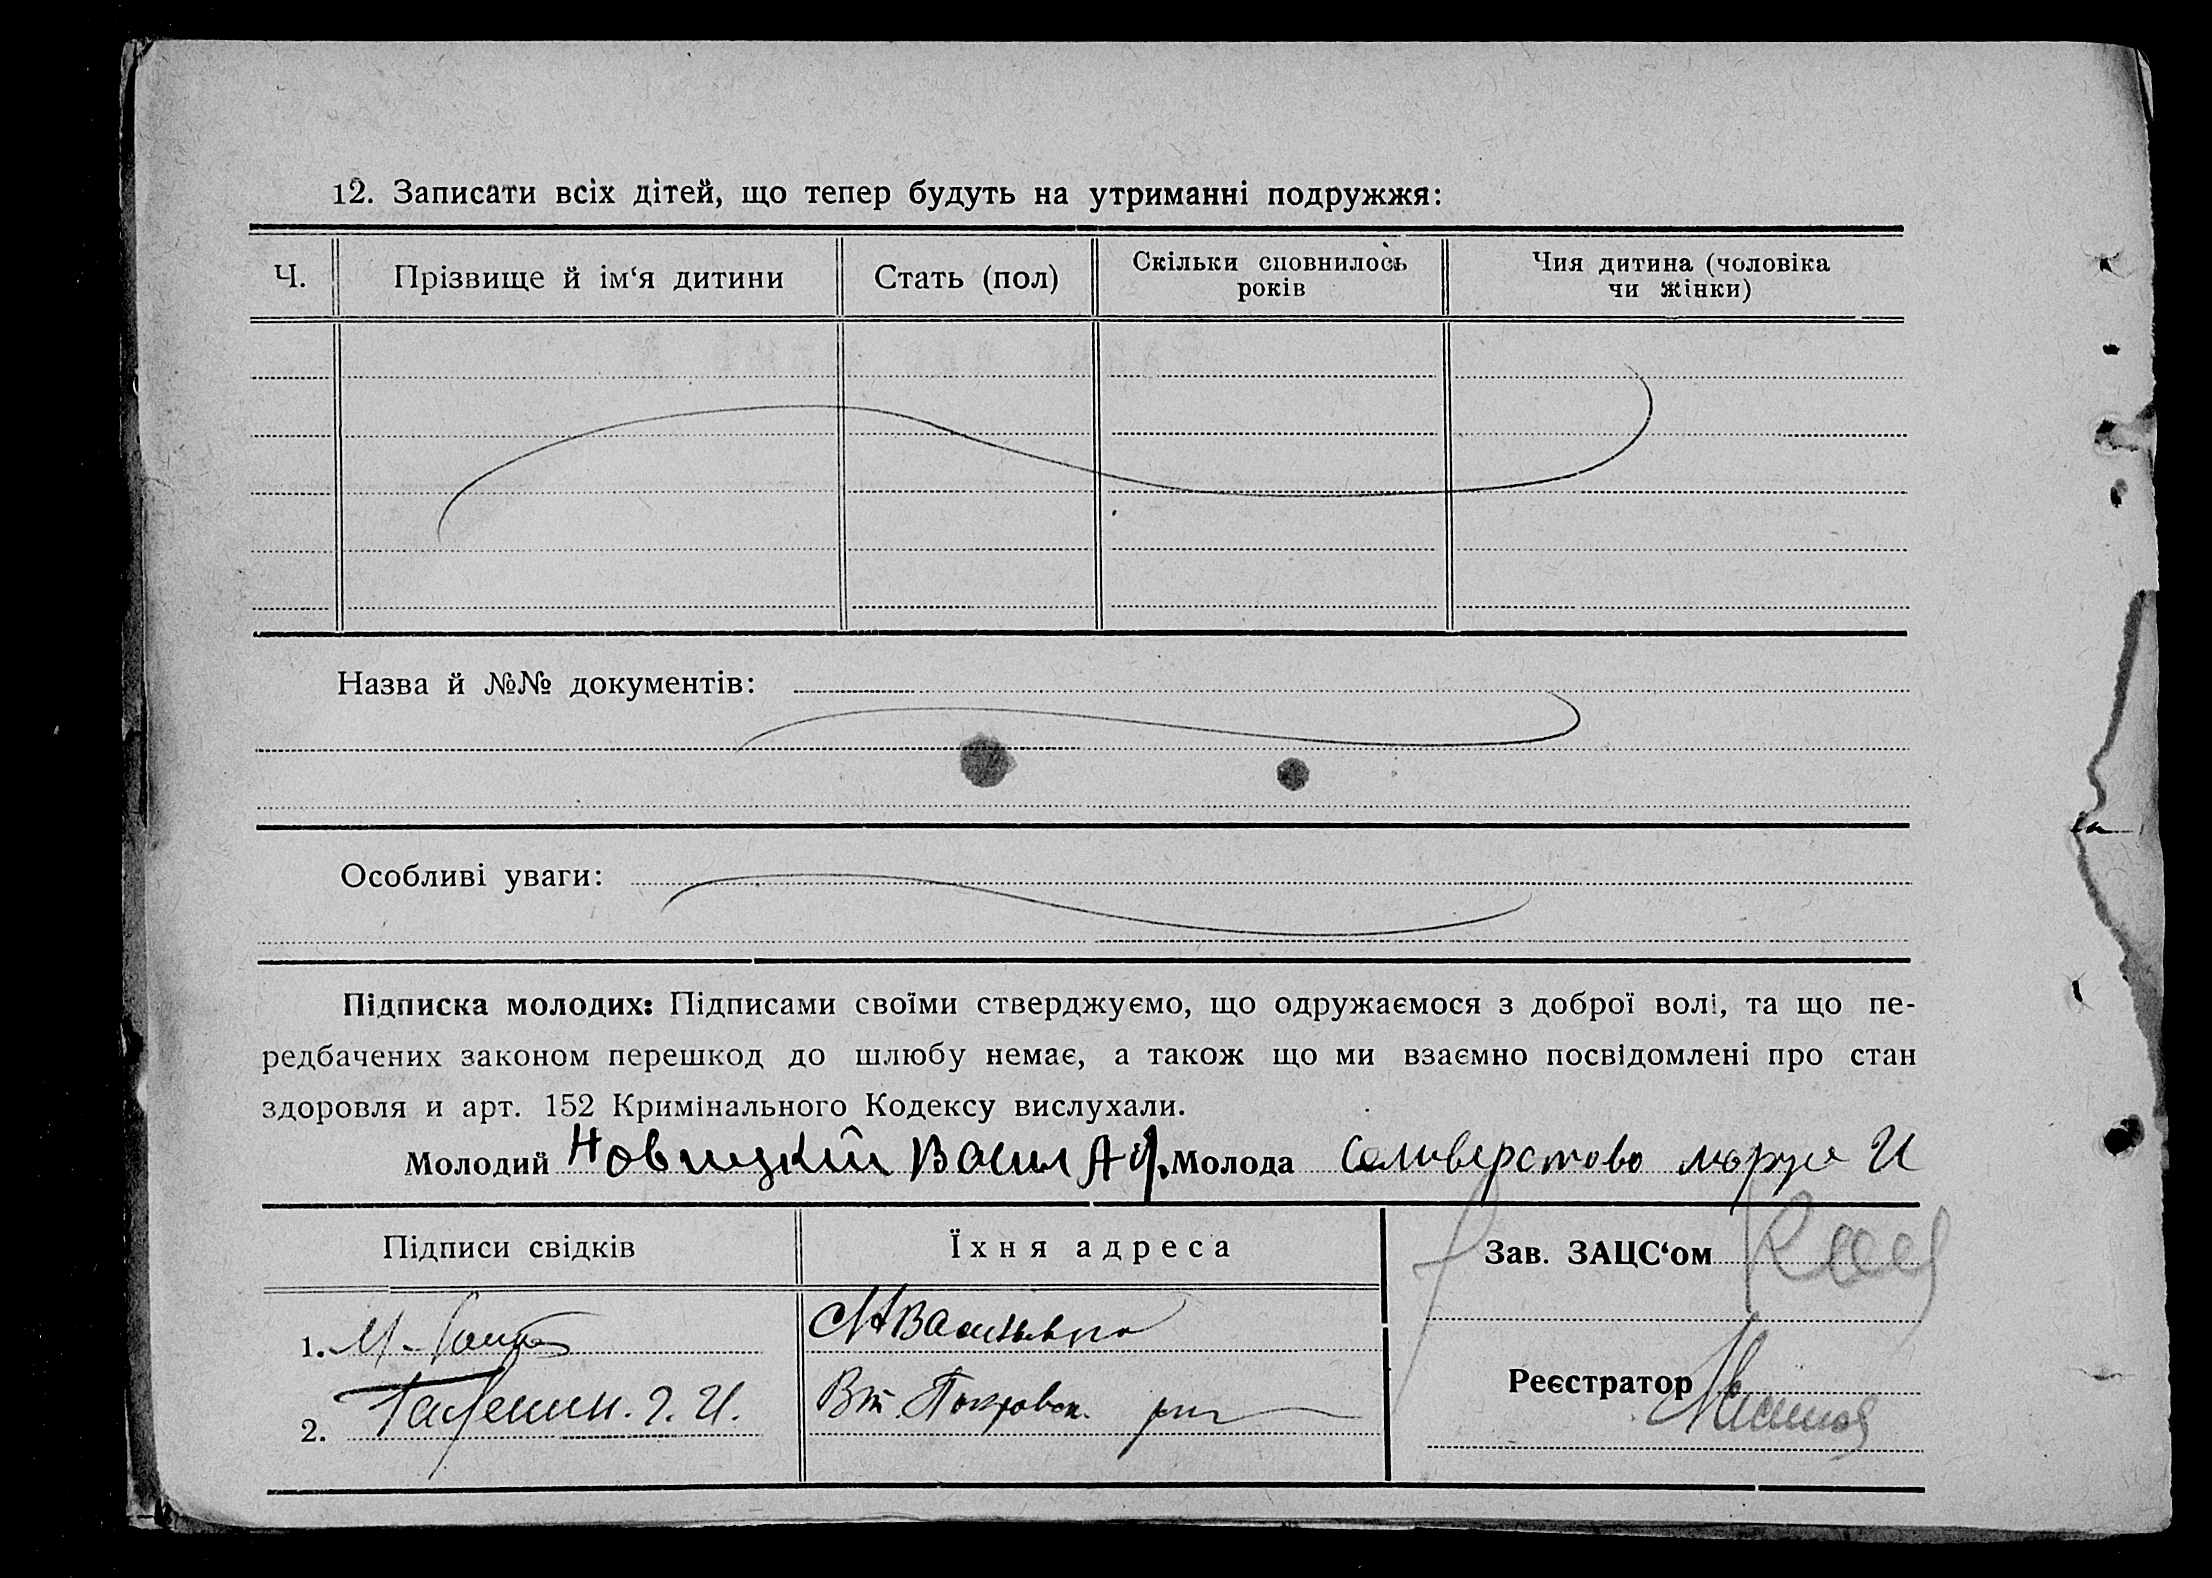 12. Записати всіх дітей, що тепер будуть на утриманні подружжя:
Ч.
Прізвище й ім‘я дитини
Стать (пол)
Скільки сповнилось
років
Чия дитина (чоловіка
чи жінки)
Назва й №№ документів:
Особливі уваги:
Підписка молодих: Підписами своїми стверджуємо, що одружаємося з доброї волі, та що пе-
редбачених законом перешкод до шлюбу немає, а також що ми взаємно посвідомлені про стан
здоровля и арт. 152 Кримінального Кодексу вислухали.
Молодий Новицкий Васил Молода Селиверстово маруся И
Підписи свідків
Їхня адреса
Зав. ЗАЦС‘ом
1. М.
2.
Реєстратор